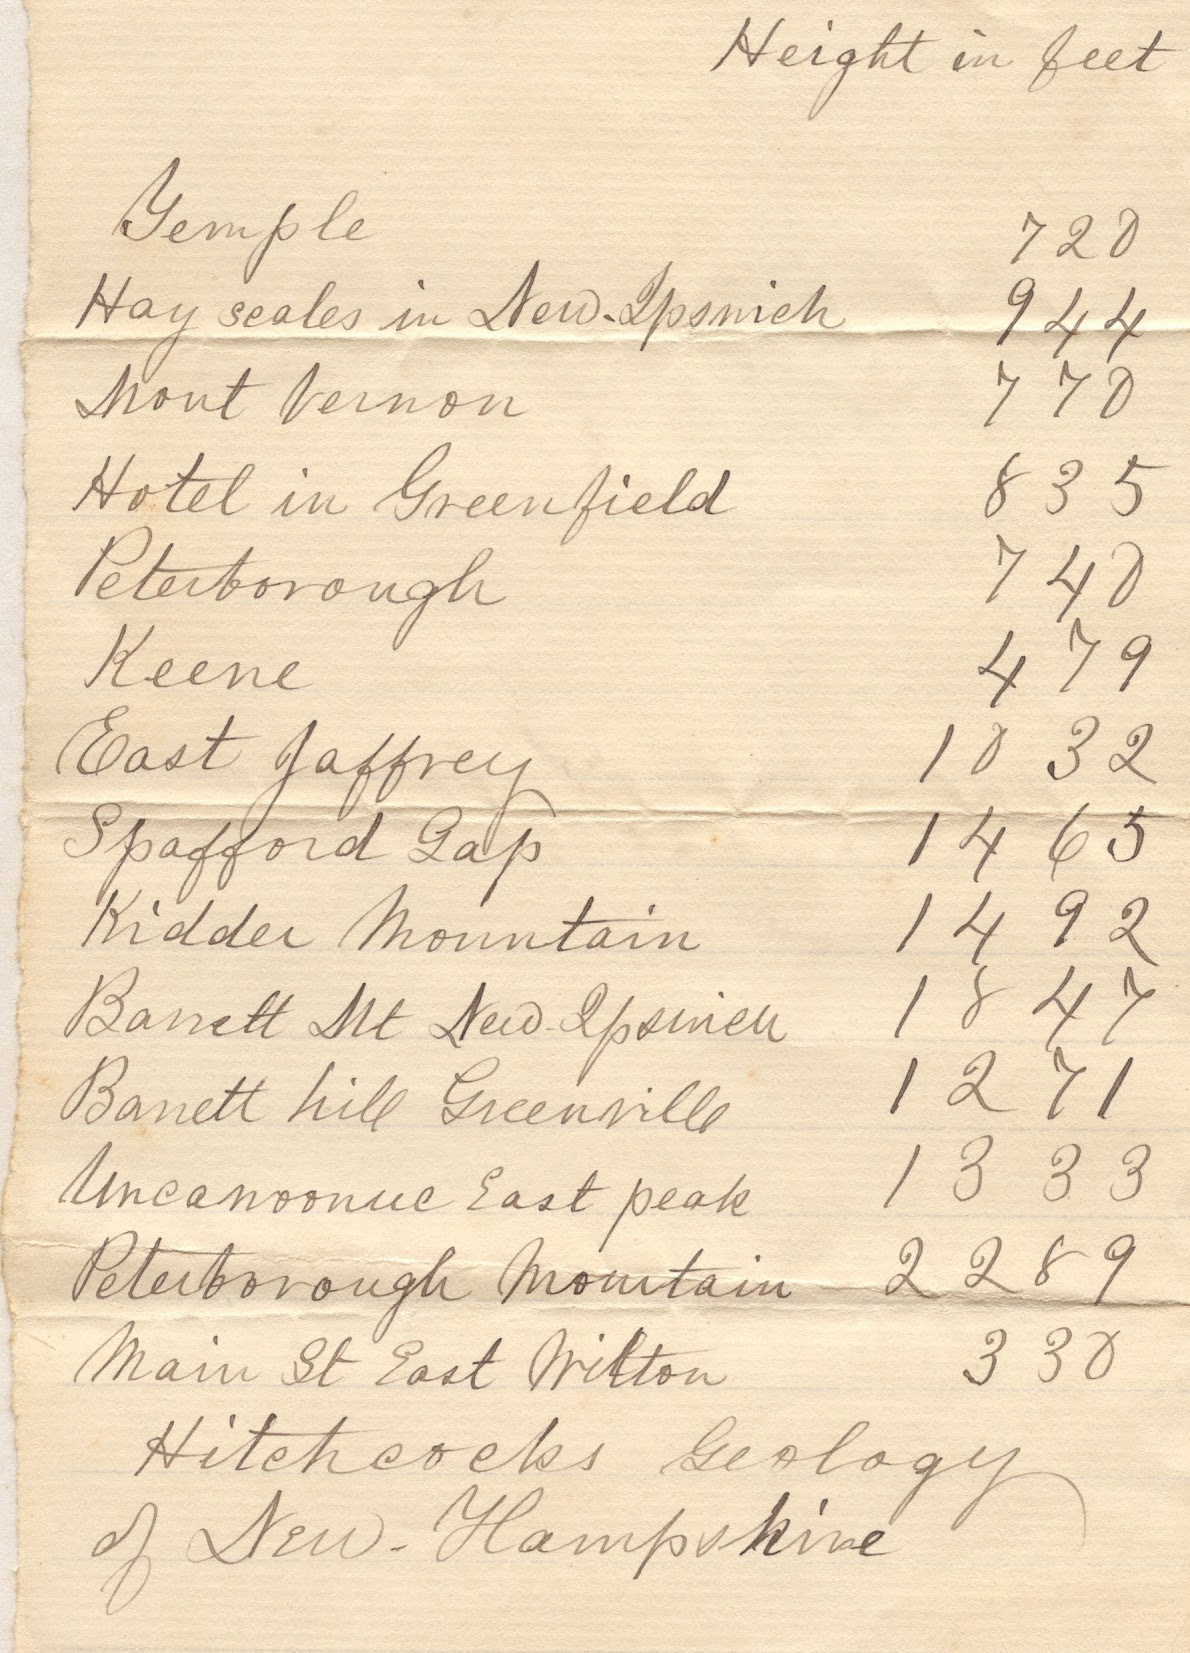 Height in feet
Temple 720
Hay scales in New-Ipswich 944
Mont Vernon 770
Hotel in Greenfield 835
Peterborough 740
Keene 479
East Jaffrey 1032
Spafford Gap 1465
Kidder Mountain 1492
Barrett Mt New-Ipswich 1847
Barrett hill Greenville 1271
Uncanoonuc East peak 1333
Peterborough Mountain 2289
Main St East Wilton 330
Hitchcocks Geology
of New-Hampshire